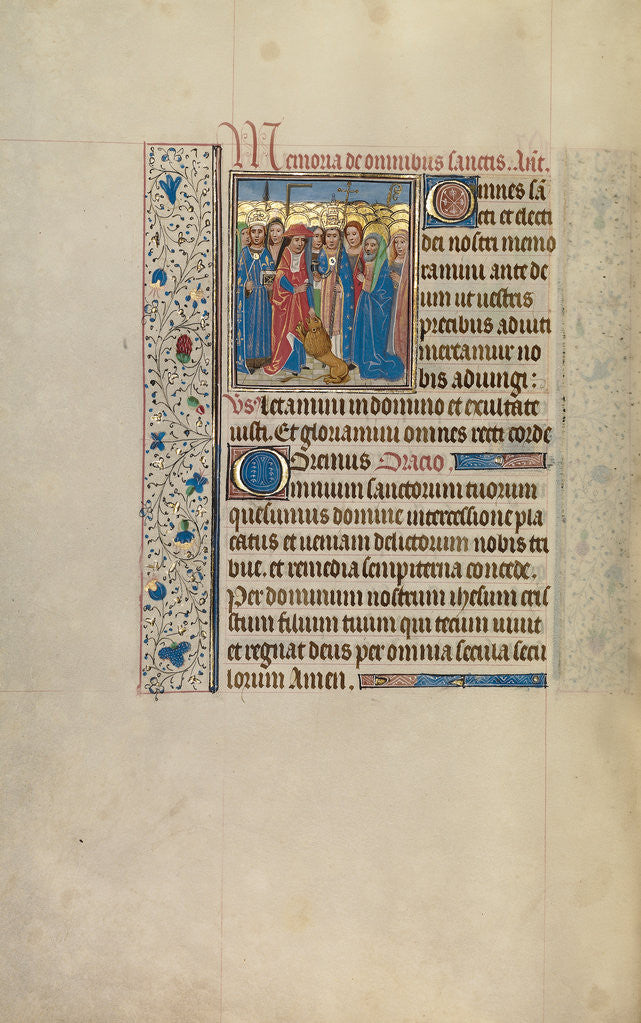 Memoria de omnibus sanctis. Ant.
Omnes sā
cti et electi
dei nostri memo
ramini ante de
um ut uestris
precibus adiuti
mereamur no
bis adiungi:
Vs Letamini in domino et exultate
iusti. Et gloriamini omnes recti corde
Oremus Oracio
Omnium sanctorum tuorum
quesumus domine intercessione pla
catus et ueniam delictorum nobis tri
bue. et remedia sempiterna concede.
Per dominum nostrum ihesum cris
stum filium tuum qui tecum uiuit
et regnat deus per omnia secula secu
lorum Amen.